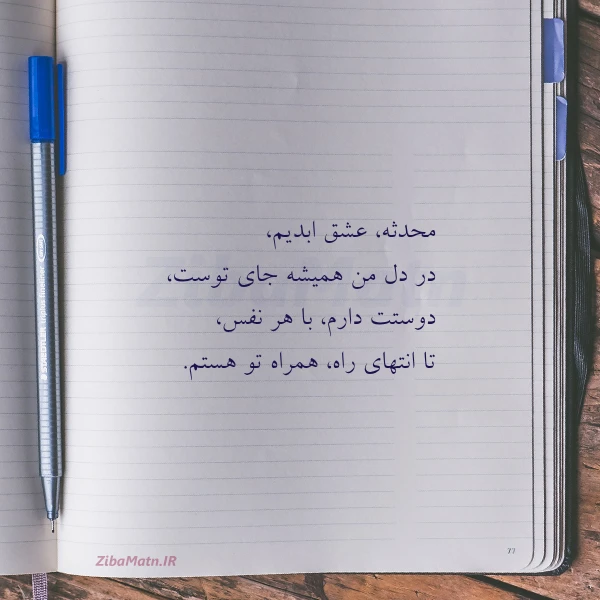 محدثه، عشق ابدیم،
در دل من همیشه جای توست،
دوستت دارم، با هر نفس،
تا انتهای راه، همراه تو هستم.
ZibaMatn
ZibaMatn.IR
77